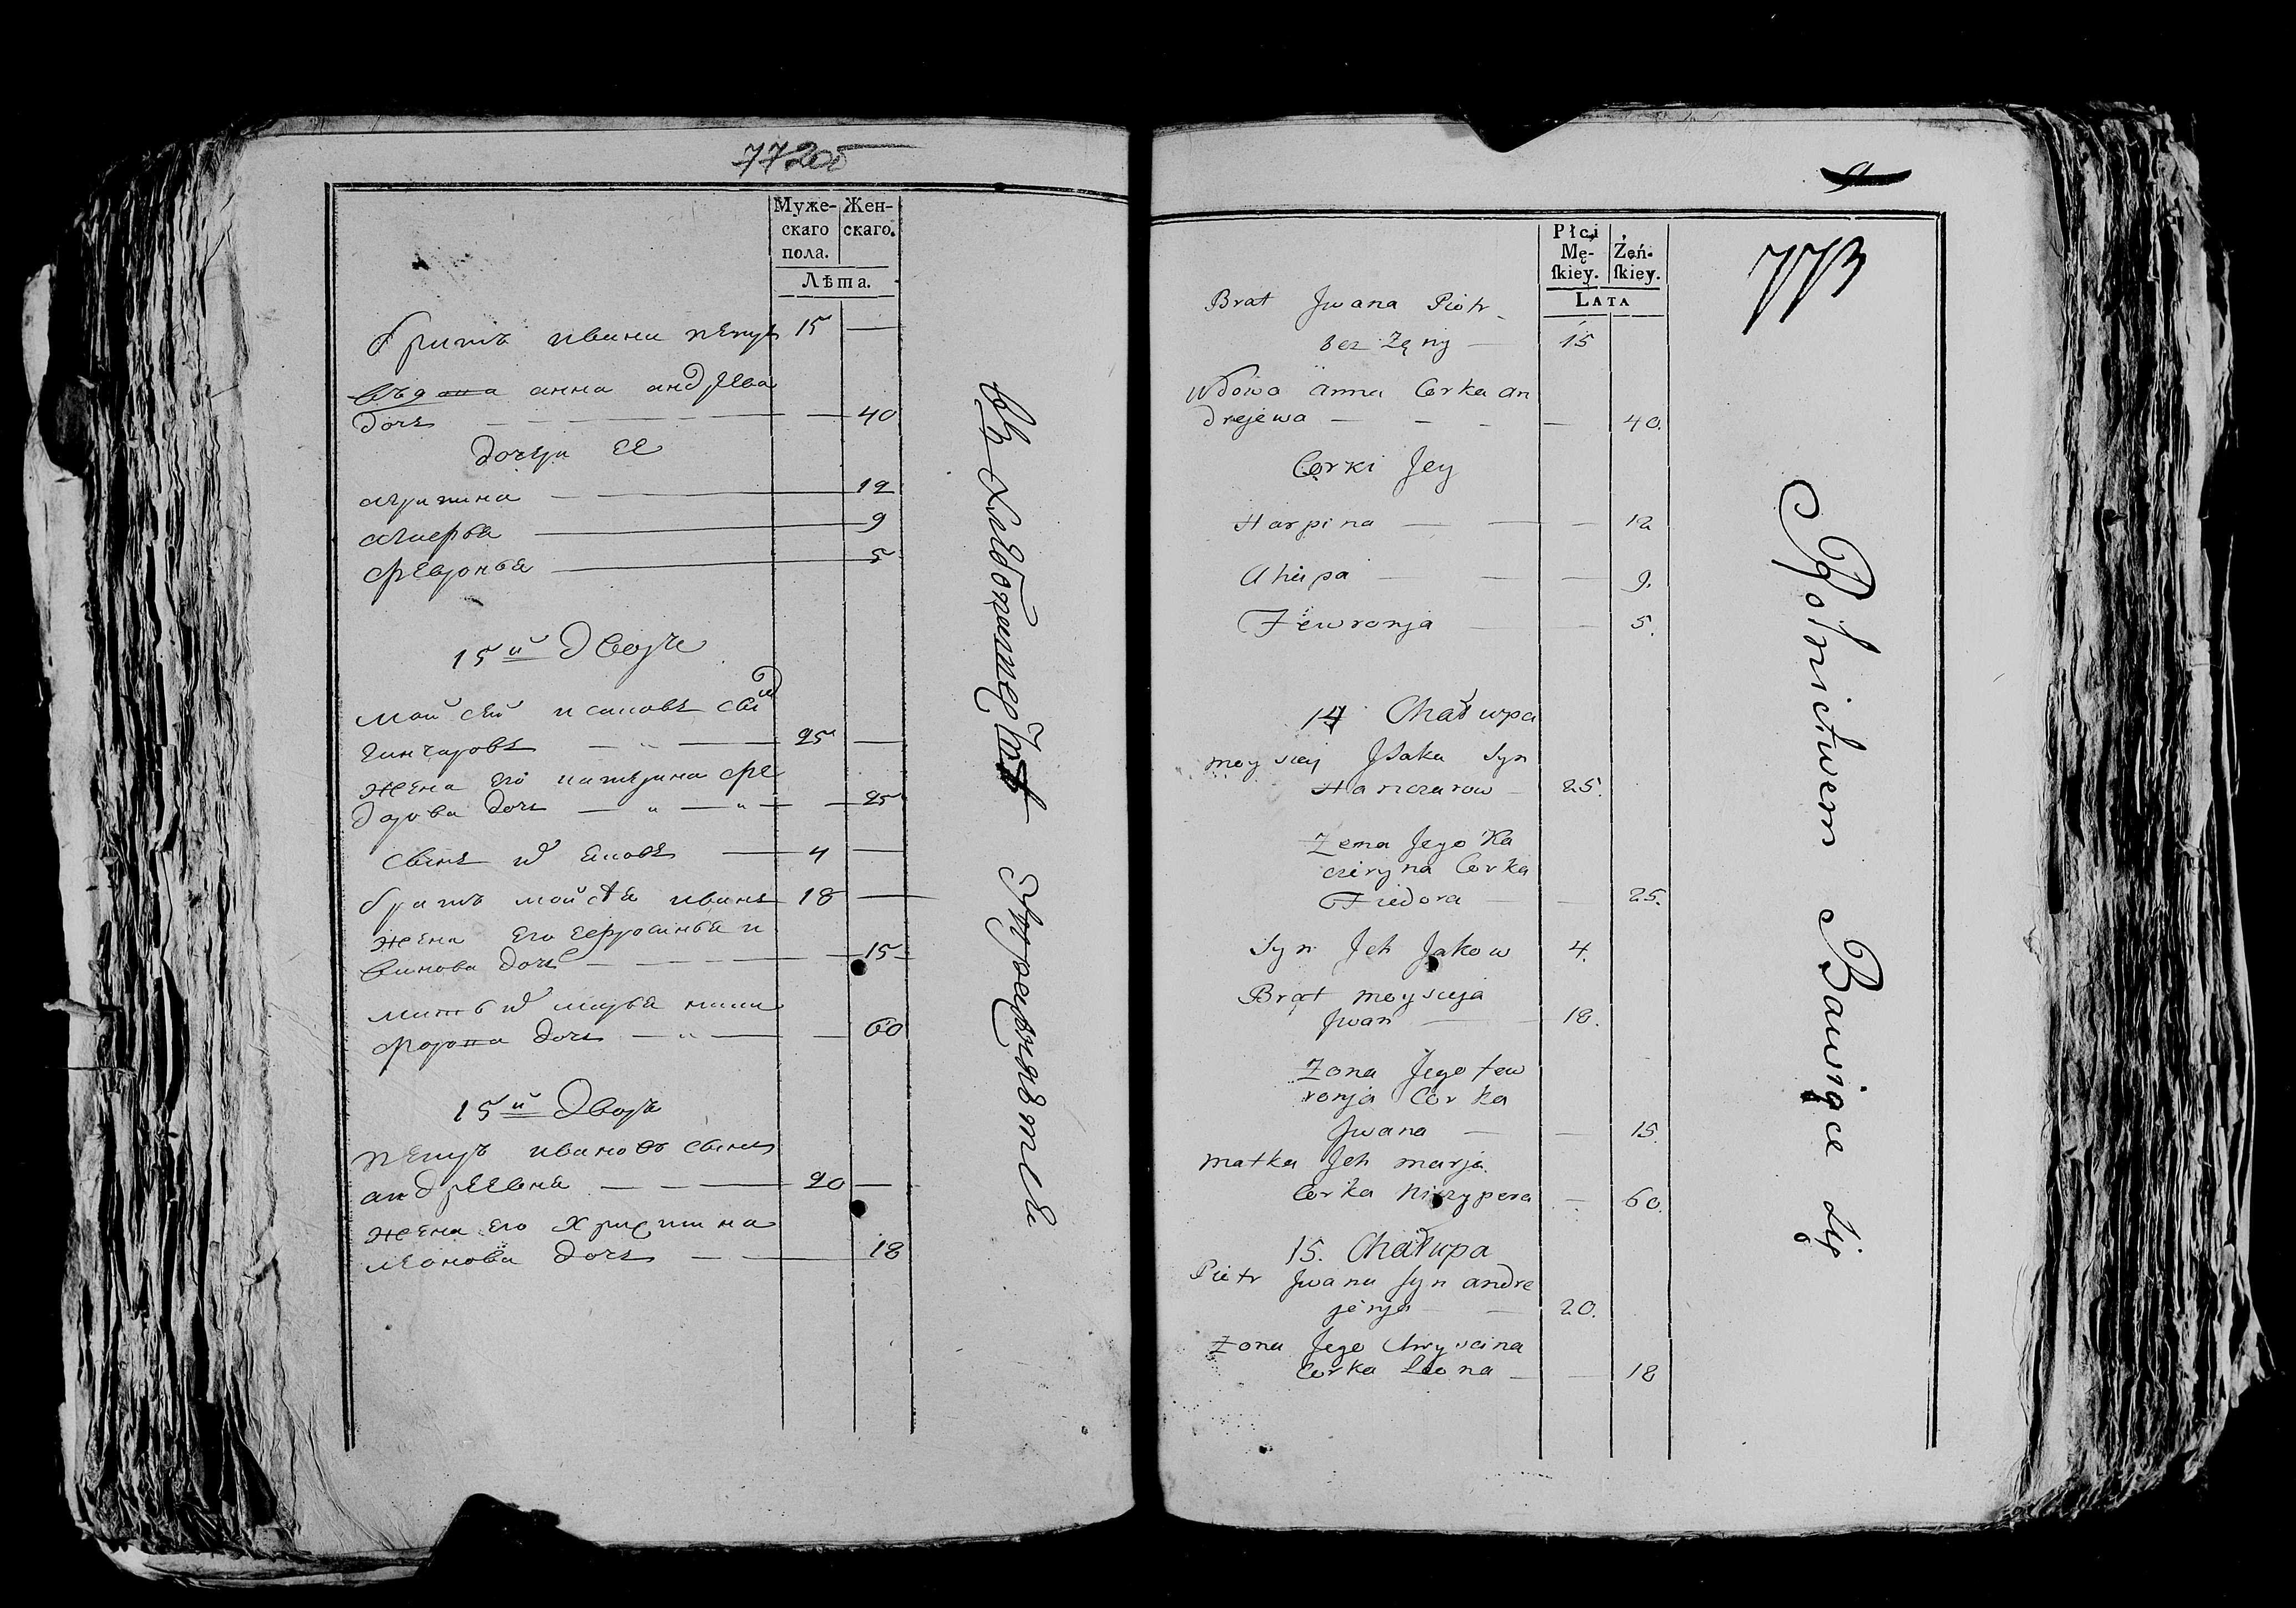 772об
Муже-
скаго
пола.
Жен-
скаго.
Лѣта.
братъ ивана петръ 15 —
въдова анна андрѣева
дочь — — — 40
дочери ее
агрипина — 12
агиефья — 9
февронья — 5
15й дворъ
мойсей исаковъ сынъ
ганчаровъ — 25 —
жена его катерина фе
дорова дочь — 25
сынъ их яковъ — 4 —
братъ мойсея иванъ 18 —
жена его еефросинья и
ванова дочь — 15
мать их марья ники
форова дочь — 60
15й дворъ
петръ ивановъ сынъ
андреевня — 20 —
жена его христина
леонова дочь — 18
въ хлебопашествѣ упражняются
773
Płci
Mę-
skiey.
Żeń-
skiey.
LATA
Brat Jwana Piotr
bez Zęny — 15
Wdowa anna Corka an
drejewa — 40.
Corki Jey
Harpina — 12
Ahapa — 9.
Fewronja — 5.
14 Chałupa
moysiej Jsaka Syn
Hanczarow — 25.
Zena Jego Ka
cziryna Corka
Fiedora — 25.
Syn Jch Jakow 4.
Brat moysieja
Jwan — 18.
Zona Jego few
ronja Corka
Jwana — 15.
matka Jch marja
Corka Niczypera — 60.
15. Chałupa
Pietr Jwana Syn andre
jenja — 20.
Zona Jego Chryscina
Corka Leona — 18
Rolnictwem Bawiące się